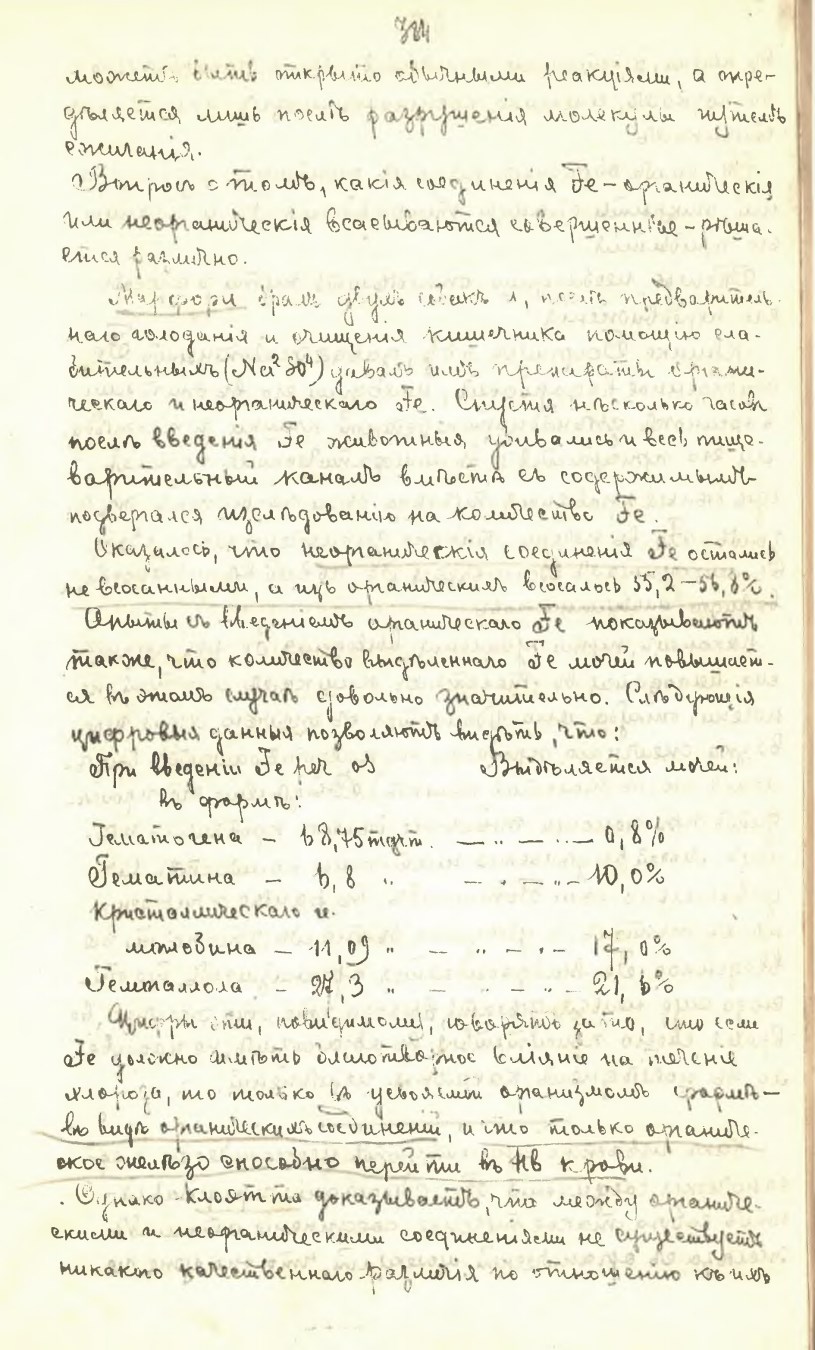 можетъ быть открыто обычными реакціями, а опре-
дѣляется лишь послѣ разрушенія молекулы путемъ
сжиганія.
Вопросъ о томъ, какія соединенія Fe – органическія
или неорганическія всасываются совершеннѣе – рѣша-
ется различно.
Марфори бралъ двухъ собакъ и, послѣ предваритель-
наго голоданія и очищенія кишечника помощію сла-
бительныхъ (Na²SO⁴) давалъ имъ препараты органи-
ческаго и неорганическаго Fe. Спустя нѣсколько часовъ
послѣ введенія Fe животныя убивались и весь пище-
варительный каналъ вмѣстѣ съ содержимымъ
подвергался изслѣдованію на количество Fe.
Оказалось, что неорганическія соединенія Fe остались
не всосанными, а изъ органическихъ всосалось 55,2 – 56,8%.
Опыты съ введеніемъ органическаго Fe показываютъ
также, что количество выдѣленнаго Fe мочей повышает-
ся въ этомъ случаѣ довольно значительно. Слѣдующія
цифровыя данныя позволяютъ видѣть, что:
При введеніи Fe per os Выдѣляется мочей:
въ формѣ:
Гематогена – 68,75 mgrm. — ·· — ·· — 0,8%
Гематина – 6,8 ·· — · — ·· — 10,0%
Кристаллическаго ге-
моглобина – 11,09 ·· — ·· — ·· — 17,0%
Гемоллола – 27,3 ·· — ·· — ·· — 21,6%
Цифры эти, повидимому, говорятъ за то, что если
Fe должно имѣть благотворное вліяніе на теченіе
хлороза, то только въ усвояемой организмомъ формѣ –
въ видѣ органическихъ соединеній, и что только органиче-
ское желѣзо способно перейти въ Hb крови.
Однако Клоэтта доказываетъ, что между органиче-
скими и неорганическими соединеніями не существуетъ
никакого качественнаго различія по отношенію къ ихъ